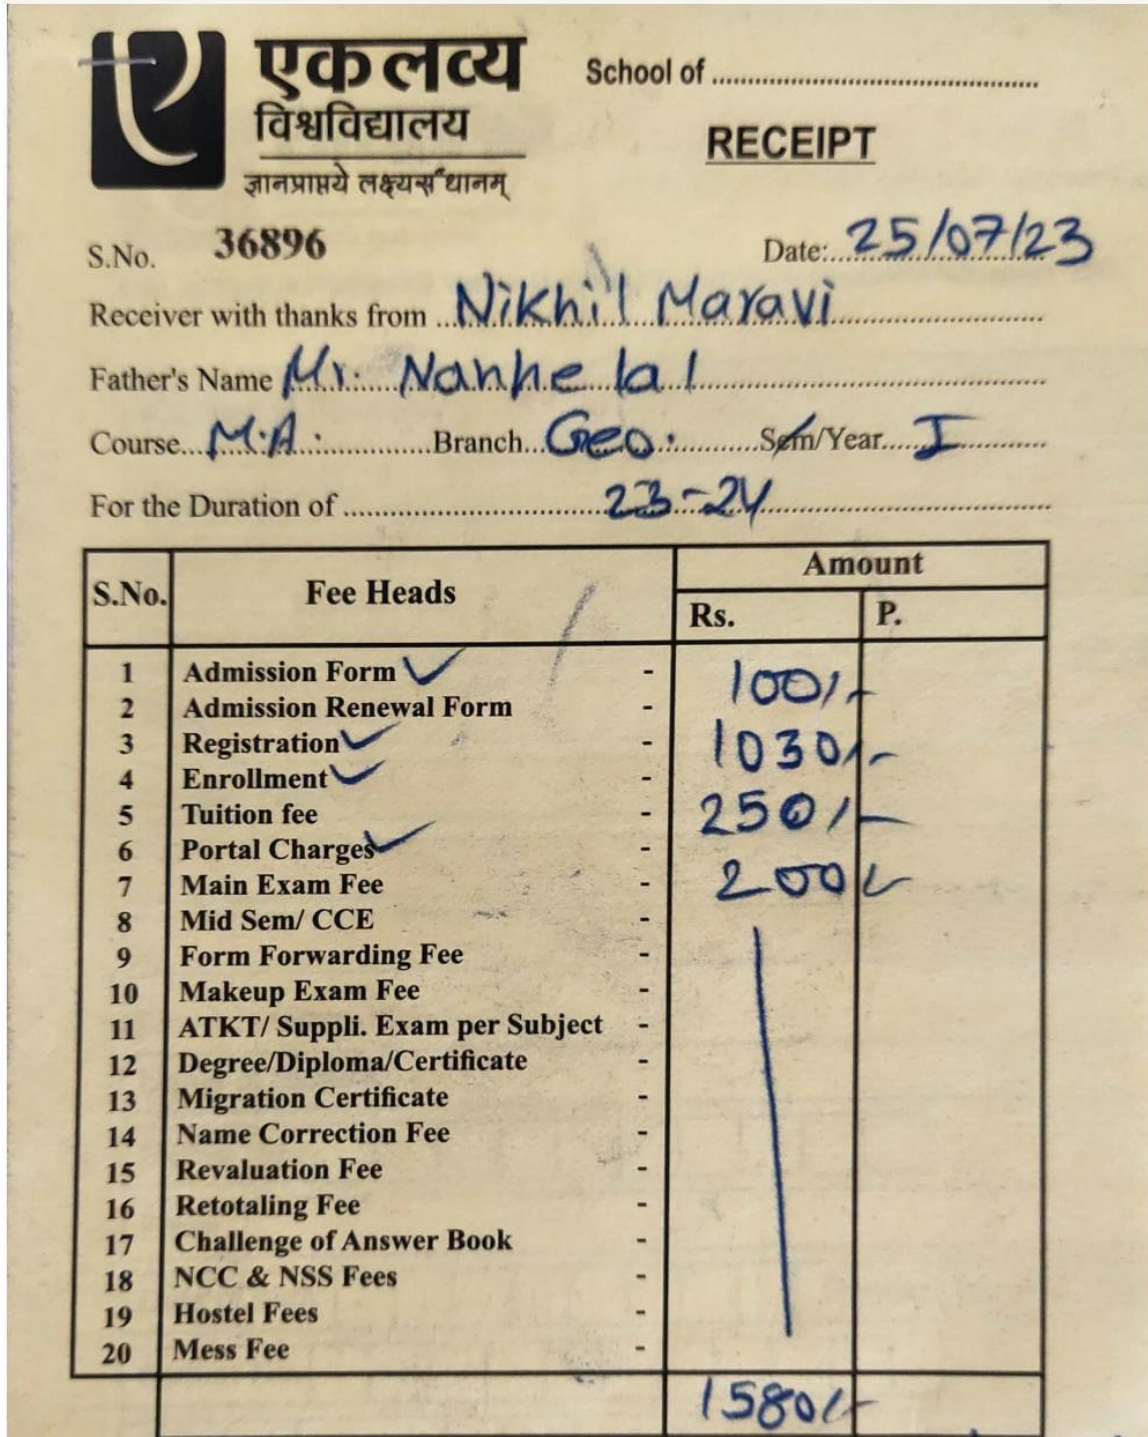 एकलव्य
विश्वविद्यालय
ज्ञानप्राप्तये लक्ष्यसंधानम्
School of ........................................
RECEIPT
S.No. 36896 Date: 25/07/23
Receiver with thanks from Nikhil Maravi
Father's Name Mr. Nanhe lal
Course M.A. Branch Geo. Sem/Year I
For the Duration of 23-24
S.No. Fee Heads Amount
Rs. P.
1 Admission Form ✓ - 100/-
2 Admission Renewal Form -
3 Registration ✓ - 1030/-
4 Enrollment ✓ -
5 Tuition fee - 250/-
6 Portal Charges ✓ -
7 Main Exam Fee - 200/-
8 Mid Sem/ CCE -
9 Form Forwarding Fee -
10 Makeup Exam Fee -
11 ATKT/ Suppli. Exam per Subject -
12 Degree/Diploma/Certificate -
13 Migration Certificate -
14 Name Correction Fee -
15 Revaluation Fee -
16 Retotaling Fee -
17 Challenge of Answer Book -
18 NCC & NSS Fees -
19 Hostel Fees -
20 Mess Fee -
1580/-